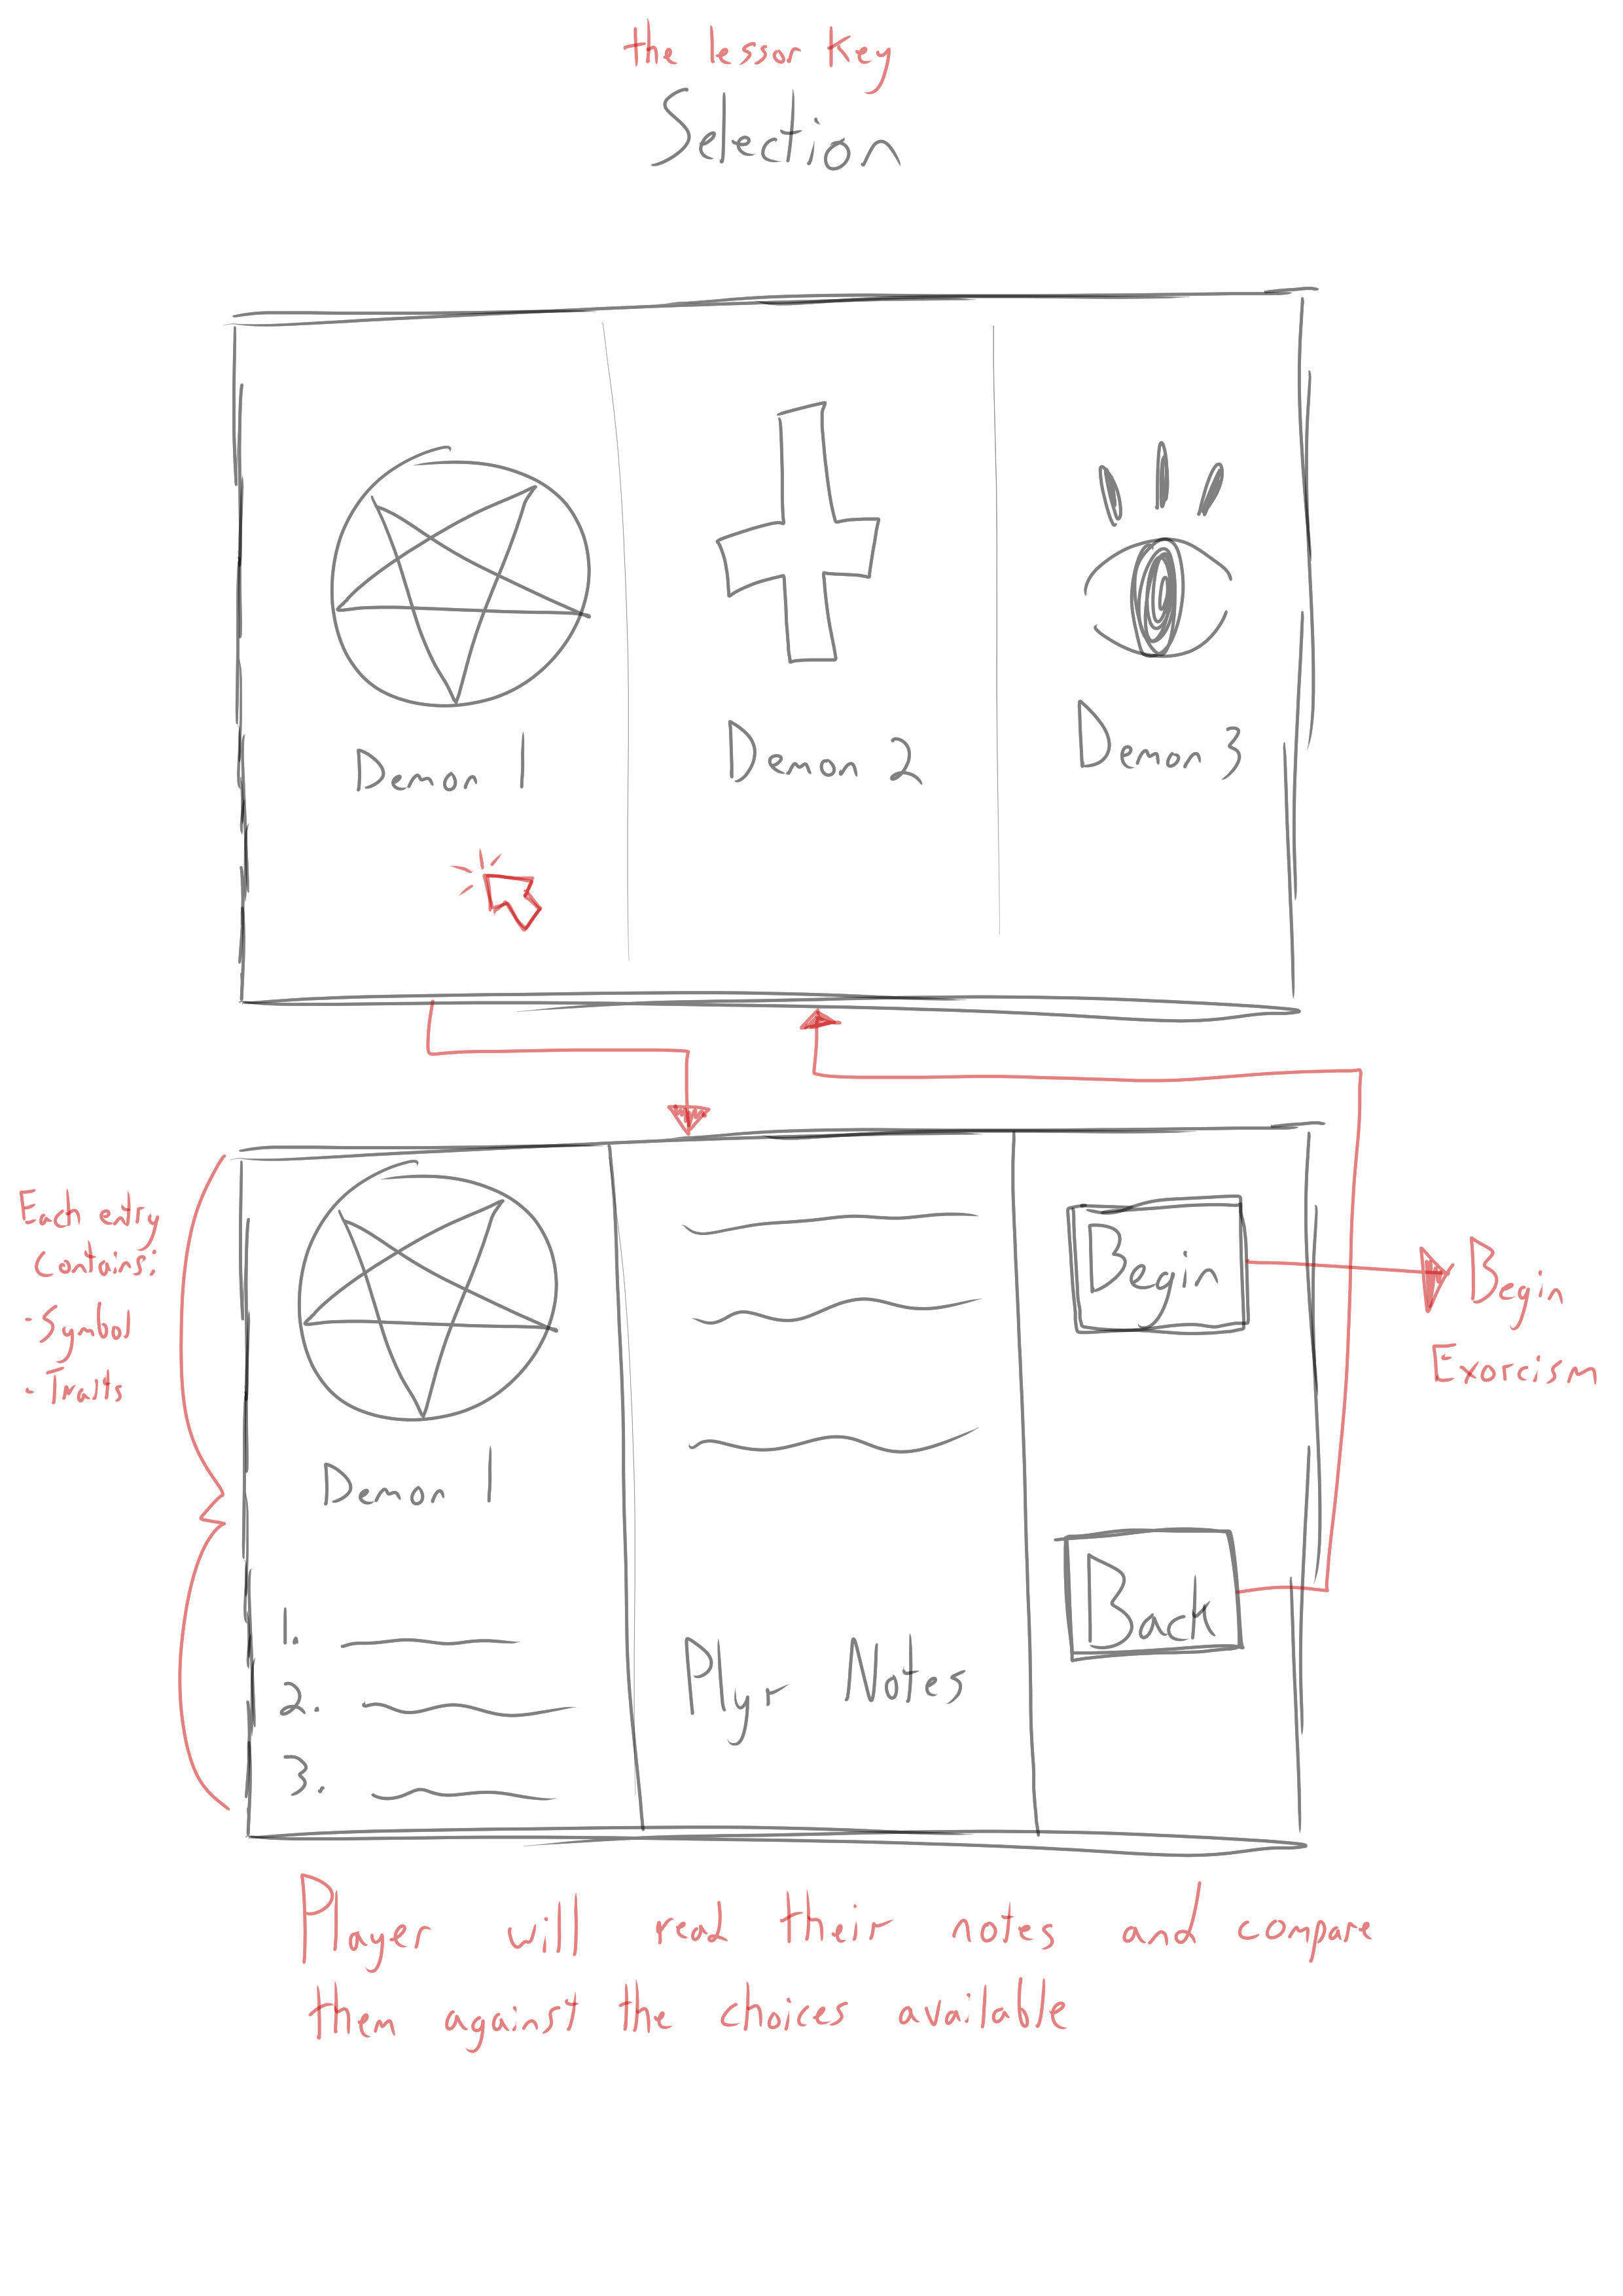 the lessor key
Selection
Demon 1
Demon 2
Demon 3
Each entry
contains:
- Symbol
- Traits
Demon 1
1.
2.
3.
Plyr Notes
Begin
Back
Begin
Exorcism
Player will read their notes and compare
them against the choices available